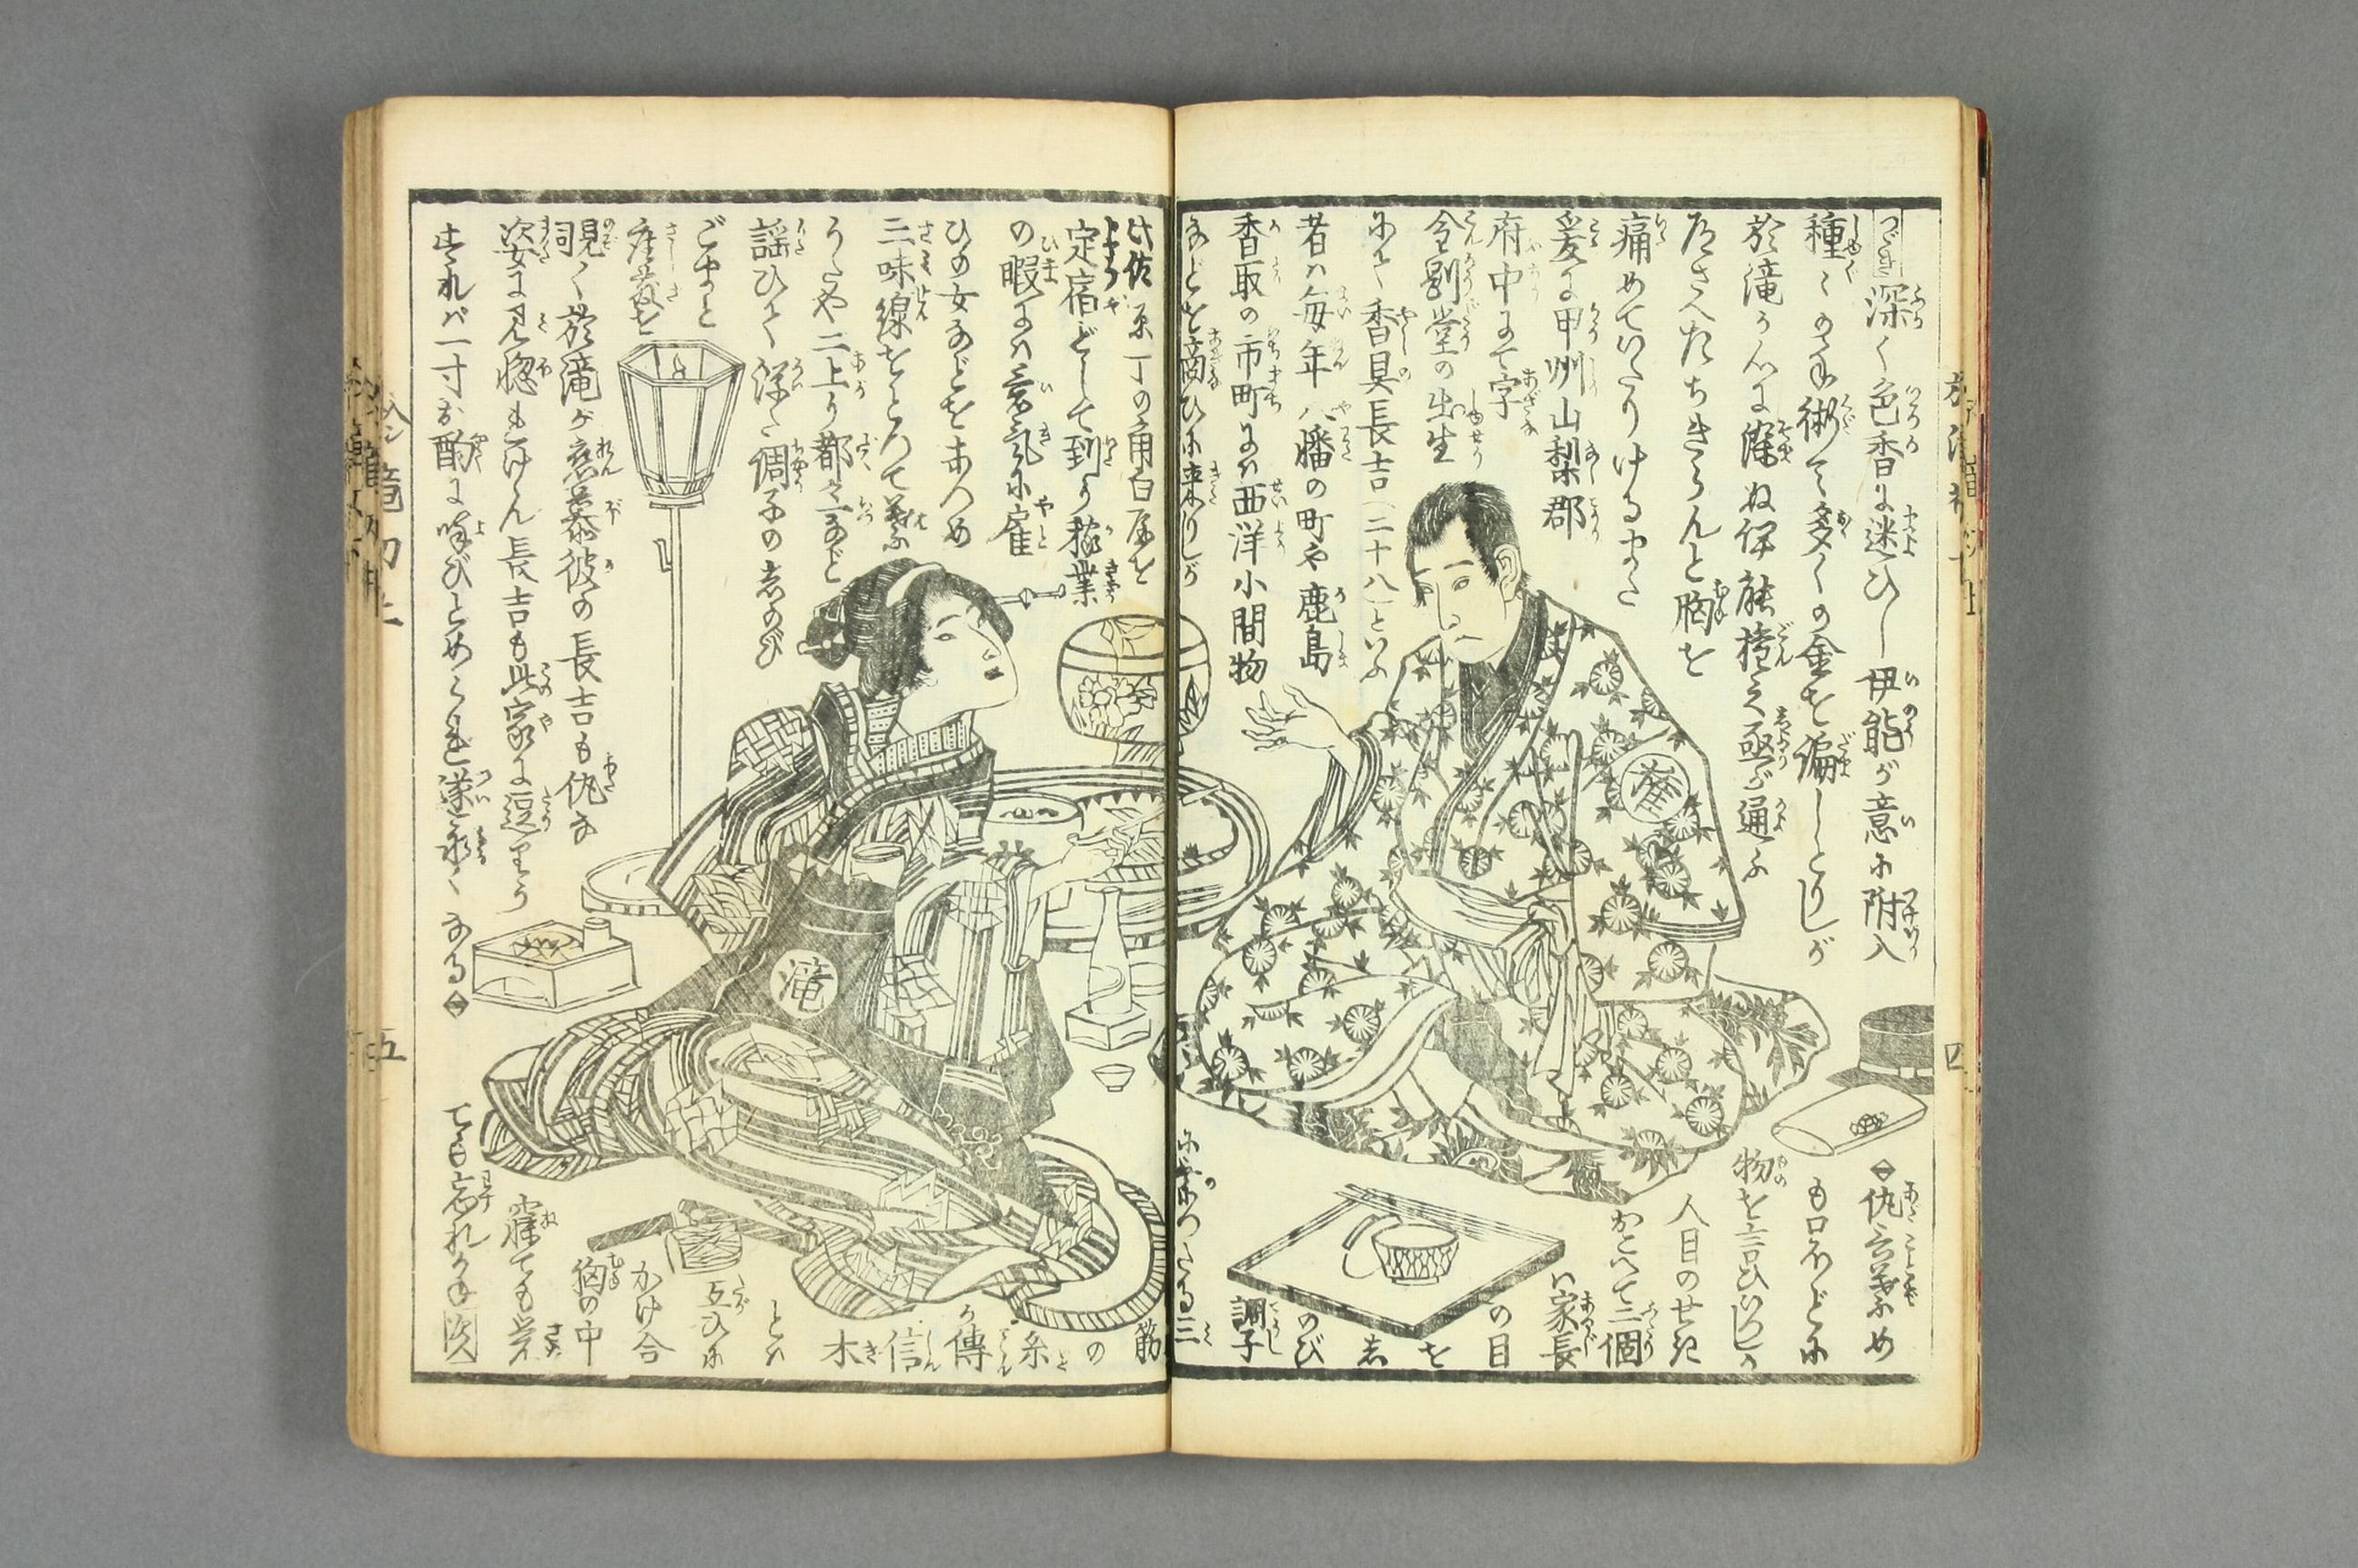 つゞき
深く色香に迷ひし伊能が意に附入
種々の手術にて多くの金を偏しとりしが
於滝が心に深ぬ伊能権之亟が通ふ
さへたちきらんと胸を
痛めていたりけるまた
爰に甲州山梨郡
府中にて字
金剛堂の出生
にて香具長吉(二十八)といふ
者ハ毎年八幡の町や鹿島
香取の市町にハ西洋小間物
などを商ひに来りしが
佐原丁の角白屋を
定宿として到り稼業
の暇にハ意気に雇
ひの女などをあつめ
三味線をとつて葉
うたや二上り都々一など
謡ひて浮た調子のしのび
ごまと
座敷を
覗く於滝が恋慕彼の長吉も仇な
姿に見惚もけん長吉も此家に逗里う
すれバ一寸お酌に呼びとめられ遂永くなる
仇言葉にめ
も口ほどに
物を言ひいつしか
人目のせき
かこへて二個
ハ家長
の目
を
志
のび
調子
にのつたる三
筋
の
糸
が傳
信
木
とハ
互ひに
かけ合
胸の中
寐ても覚
ても忘れかね
次へ
滝
四
五